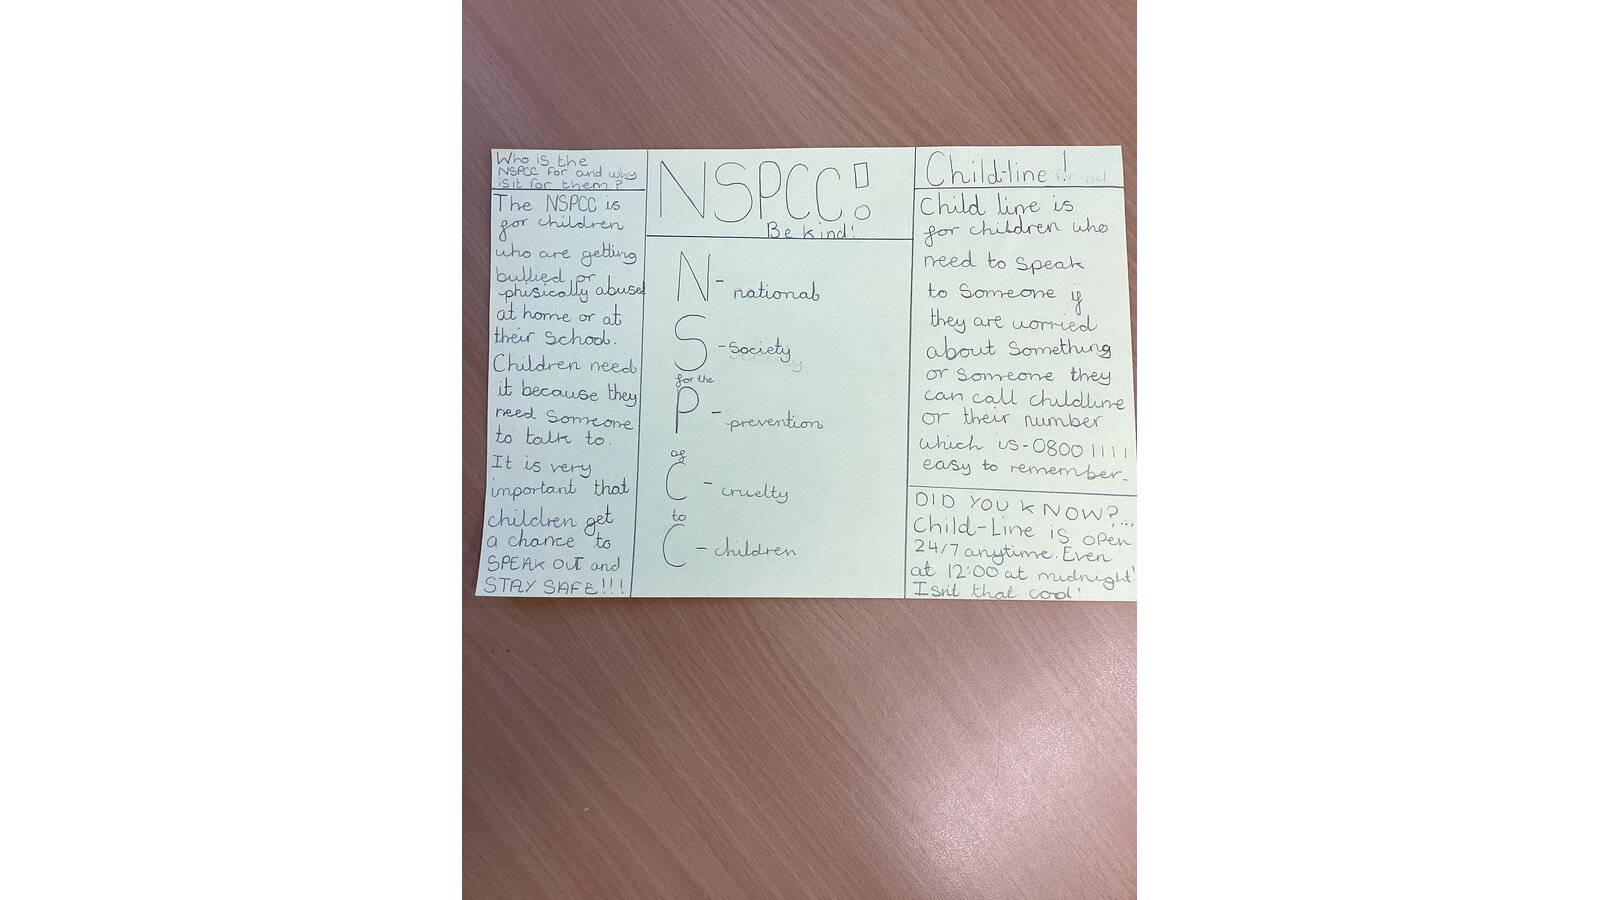 Who is the
NSPCC for and why
is it for them?
The NSPCC is
for children
who are getting
bullied or
phisically abused
at home or at
their school.
Children need
it because they
need someone
to talk to.
It is very
important that
children get
a chance to
SPEAK OUT and
STAY SAFE!!!
NSPCC!
Be kind!
N - national
S - society
for the
P - prevention
of
C - cruelty
to
C - children
Child-line!
Child line is
for children who
need to speak
to someone if
they are worried
about something
or someone they
can call childline
or their number
which is - 0800 1111
easy to remember.
DID YOU KNOW?...
Child-Line is open
24/7 anytime. Even
at 12:00 at midnight!
Isnt that cool!